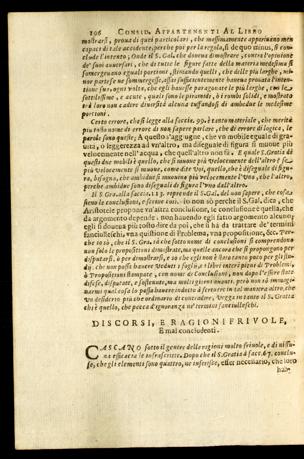 106 CONSID. APPARTENENTI AL LIBRO
mostrarsi, proua di quei particolari, che massimamente apparivano men
capaci di tale accidente, perche poi per la regola, si de quo minus, si con-
clude l'intento; Onde il S. Gal. che doueua dimostrare, contro l'opinione
de' suoi auuersari, che di tutte le figure fatte della materia medesima si
sommergeuano eguali portioni, stimando quelli, che delle più larghe, mi-
nor parte se ne sommergesse, assai sufficientemente haueua prouata l'inten-
tione sua, ogni volta, che egli hauesse paragonate le più larghe, con le
sottilissime, e acute, quali sono le piramidi, ò i rombi solidi, e mostrato
trà loro non cadere diuersità alcuna tuffandosi di ambedue le medesime
portioni.
Certo errore, che si legge alla faccia. 99. è tanto materiale, che merità
più tosto nome di errore di non sapere parlare, che di errore di logica, le
parole sono queste: A questo s'aggiugne, che vn mobile eguale di gra-
uità, o leggerezza ad vn'altro, ma diseguale di figura si muoue più
velocemente nell'acqua, che quell'altro non fà. E quale S. Gratia di
questi due mobili è quello, che si muoue più velocemente dell'altro? se
più velocemente si muoue, come dite voi, quello, che è diseguale di figu-
ra, bisogna, che ambidue si muouino più velocemente l'vno, che l'altro,
perche ambidue sono diseguali di figura l'vno dall'altro.
Il S. Gra. alla faccia. 113. reprende il S. Gal. del non sapere, che cosa
sieno le conclusioni, e scriue così. Io non sò perche il S. Gal. dica, che
Aristotele propone vn'altra conclusione, se conclusione è quella, che
da argomento depende: non hauendo egli fatto argomento alcuno;
egli si doueua più tosto dire da poi, che si ha da trattare de' termini
fanciulleschi, vna quistione di Problema, vna proposizione, &c. Per-
che io sò, che il S. Gra. sà che sotto nome di conclusioni si comprendono
non solo le propositioni dimostrate, ma quelle ancora che si propongano per
disputarsi, ò per dimostrarsi, e sò che egli non è stato tanto poco per gli stu-
dij, che non possa hauere Veduti i fogli, e i libri interi pieni di Problemi,
ò Propositioni stampate, con nome di Conclusioni, non dopo l'essere state
difese, disputate, e sostenute, ma molti giorni auanti, però non sò immagi-
narmi qual cosa lo possa hauere indotto à scriuere in tal maniera altro, che
vn desiderio più che ordinario di contradire. Vegga intanto il S. Gratia
chi è quello, che pecca d'ignoranza ne' termini fanciulleschi.
DISCORSI, E RAGIONI FRIVOLE,
E mal concludenti.
CASCANO sotto il genere delle ragioni molto friuole, e di niss-
una efficacia le infrascritte. Dopo che il S. Gratia à fac. 67. conclu-
se, che gli elementi sono quattro, ne inferisce, esser necessario, che loro
hab-